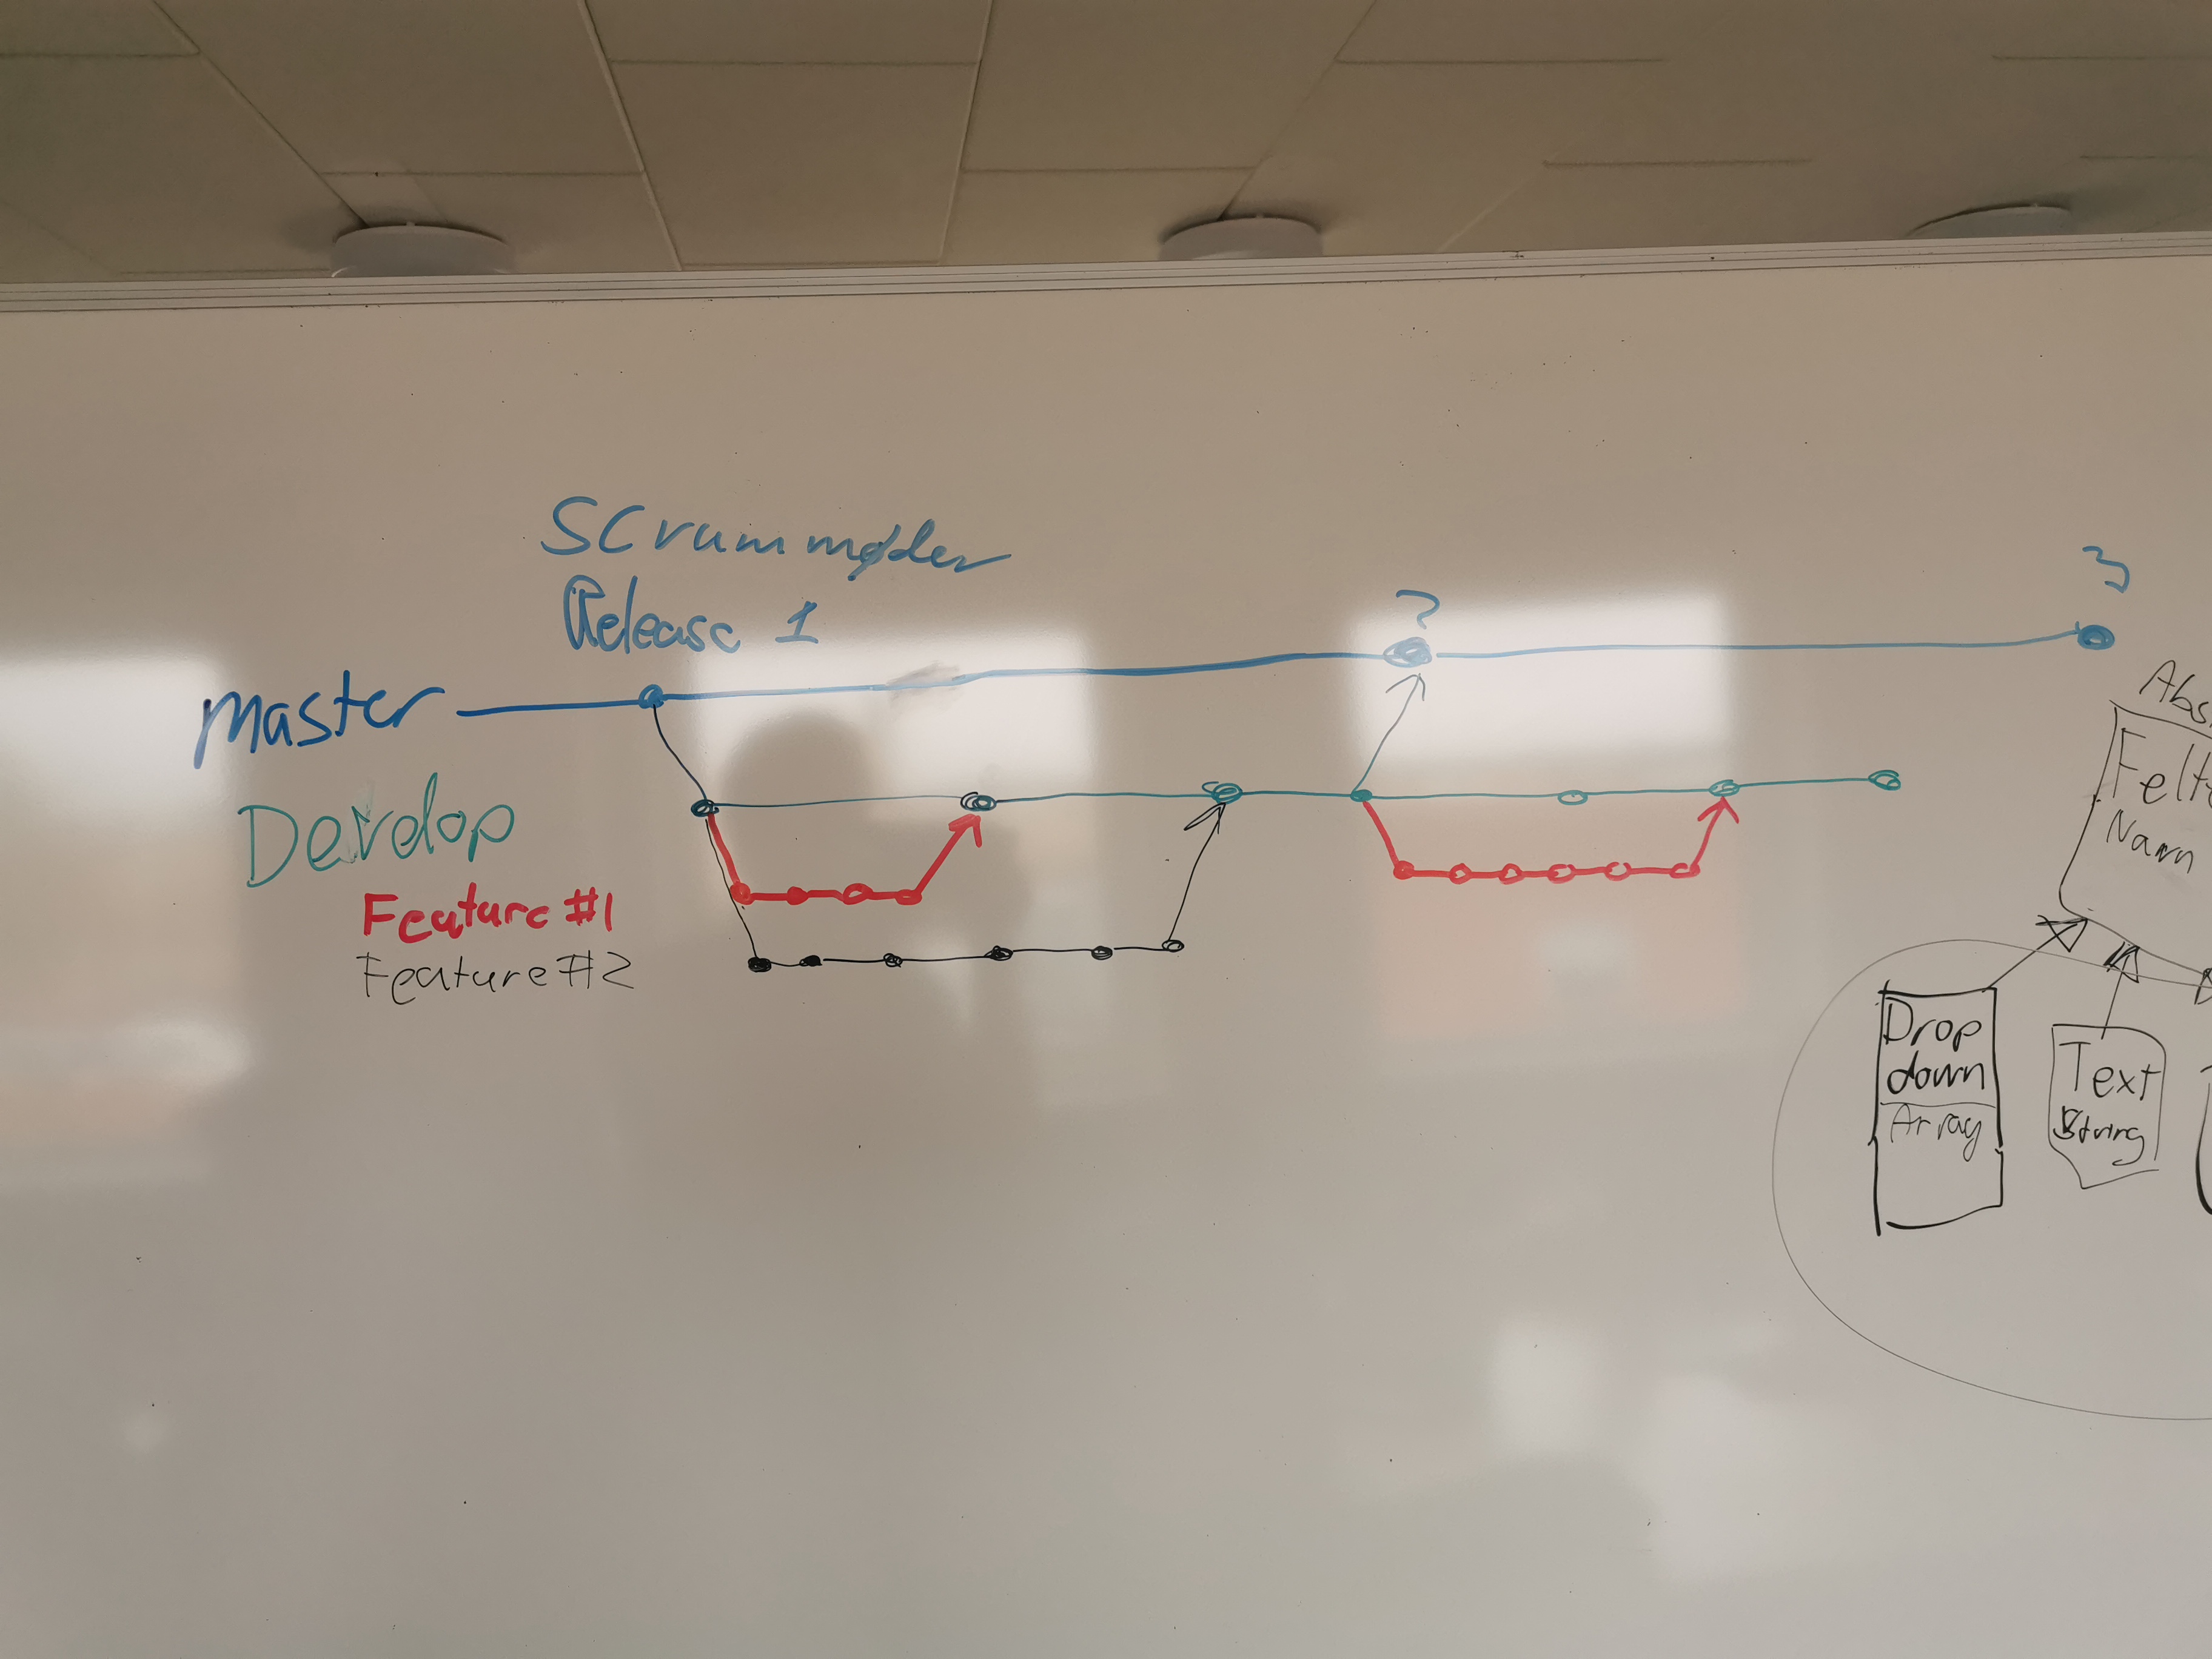 SCrummøder
Release 1
2
3
master
Develop
Feature #1
Feature #2
Drop
down
Array
Text
String